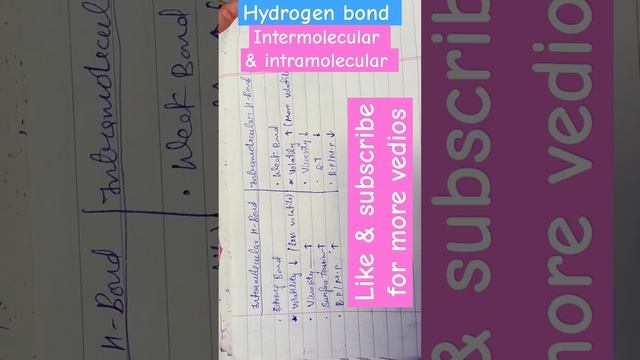 Hydrogen bond
Intermolecular
& intramolecular
Intermolecular H-Bond
• Strong Bond
* Volatility ↓ (less volatile)
• Viscosity ↑
• Surface Tension ↑
• B.P/M.P ↑
Intramolecular H-Bond
• Weak Bond
* Volatility ↑ (More volatile
• Viscosity ↓
• S.T ↓
• B.P/M.P ↓
Like & subscribe
for more vedios
H-Bond
Intramolecul
• Weak Bond
& subscrib
more vedio